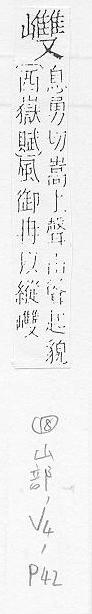 息勇切嵩上聲山聳起貌
(西嶽賦)風御冉以縱
⑱ 山部, V4, P42